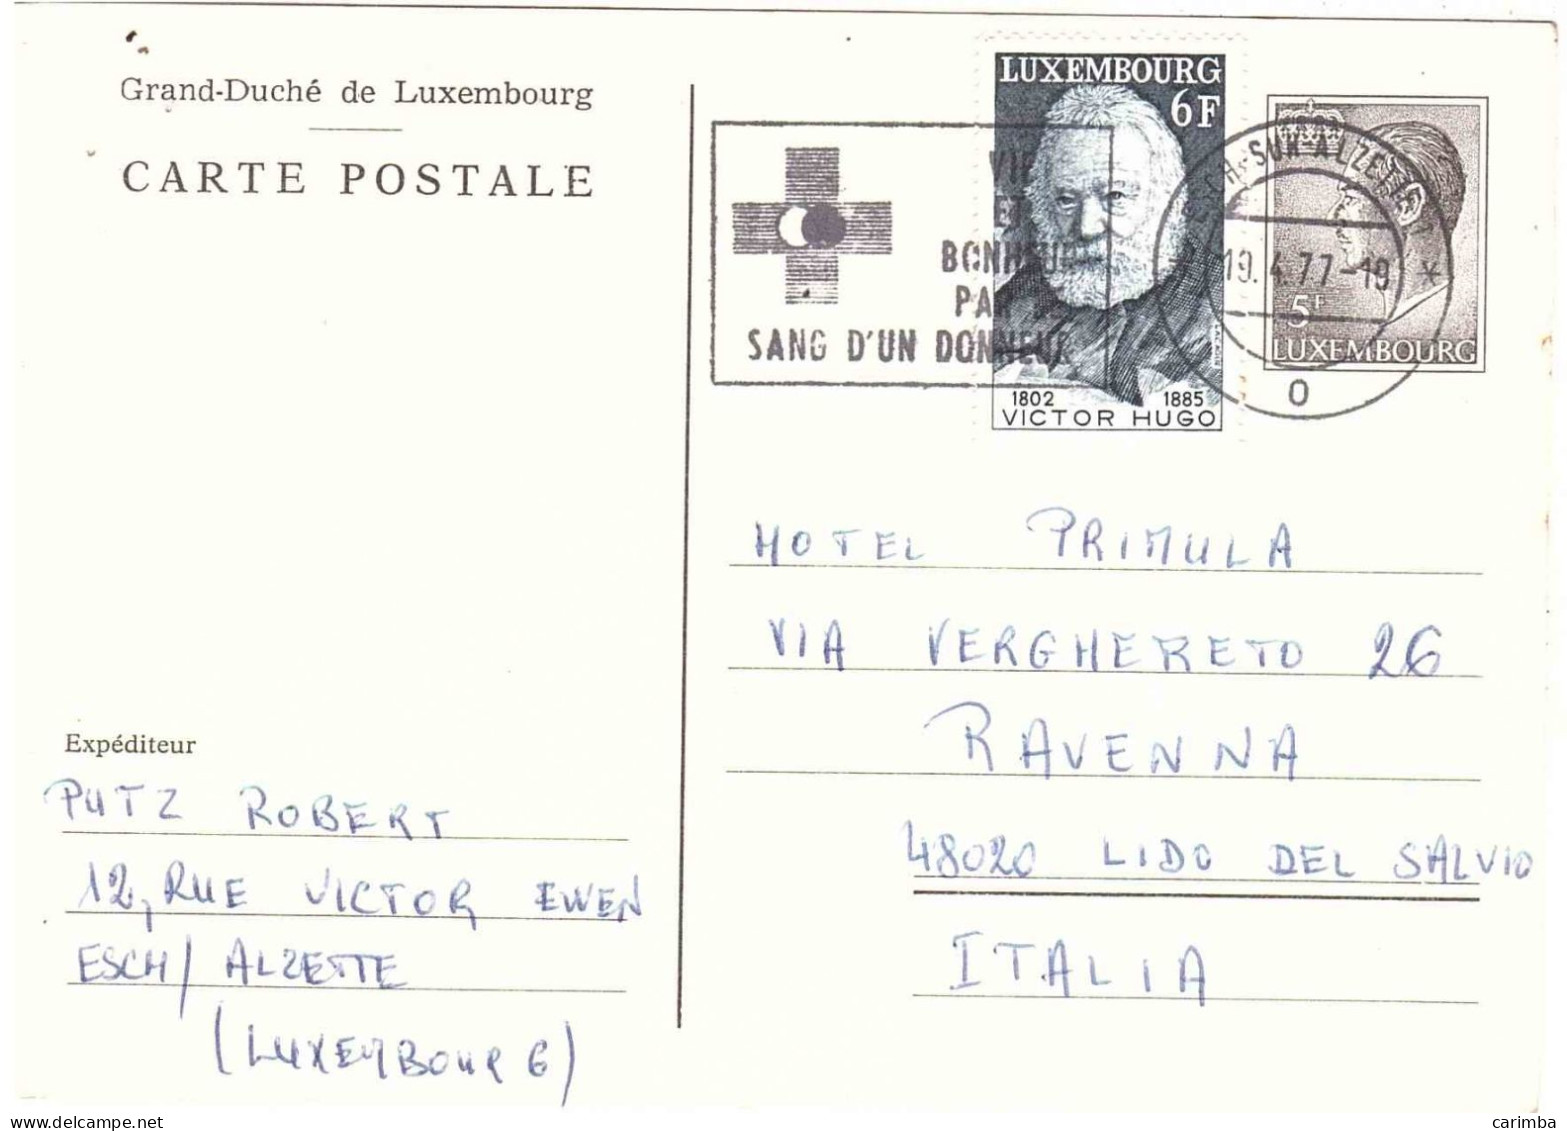 Grand-Duché de Luxembourg
CARTE POSTALE
LUXEMBOURG
6F
1802 1885
VICTOR HUGO
VIE
ET
BONHEUR
PAR
SANG D'UN DONNEUR
ESCH-SUR-ALZETTE
19.4.77-19
*
O
5F
LUXEMBOURG
HOTEL PRIMULA
VIA VERGHERETO 26
RAVENNA
48020 LIDO DEL SALVIO
ITALIA
Expéditeur
PUTZ ROBERT
12, RUE VICTOR EWEN
ESCH/ALZETTE
(LUXEMBOURG)
carimba